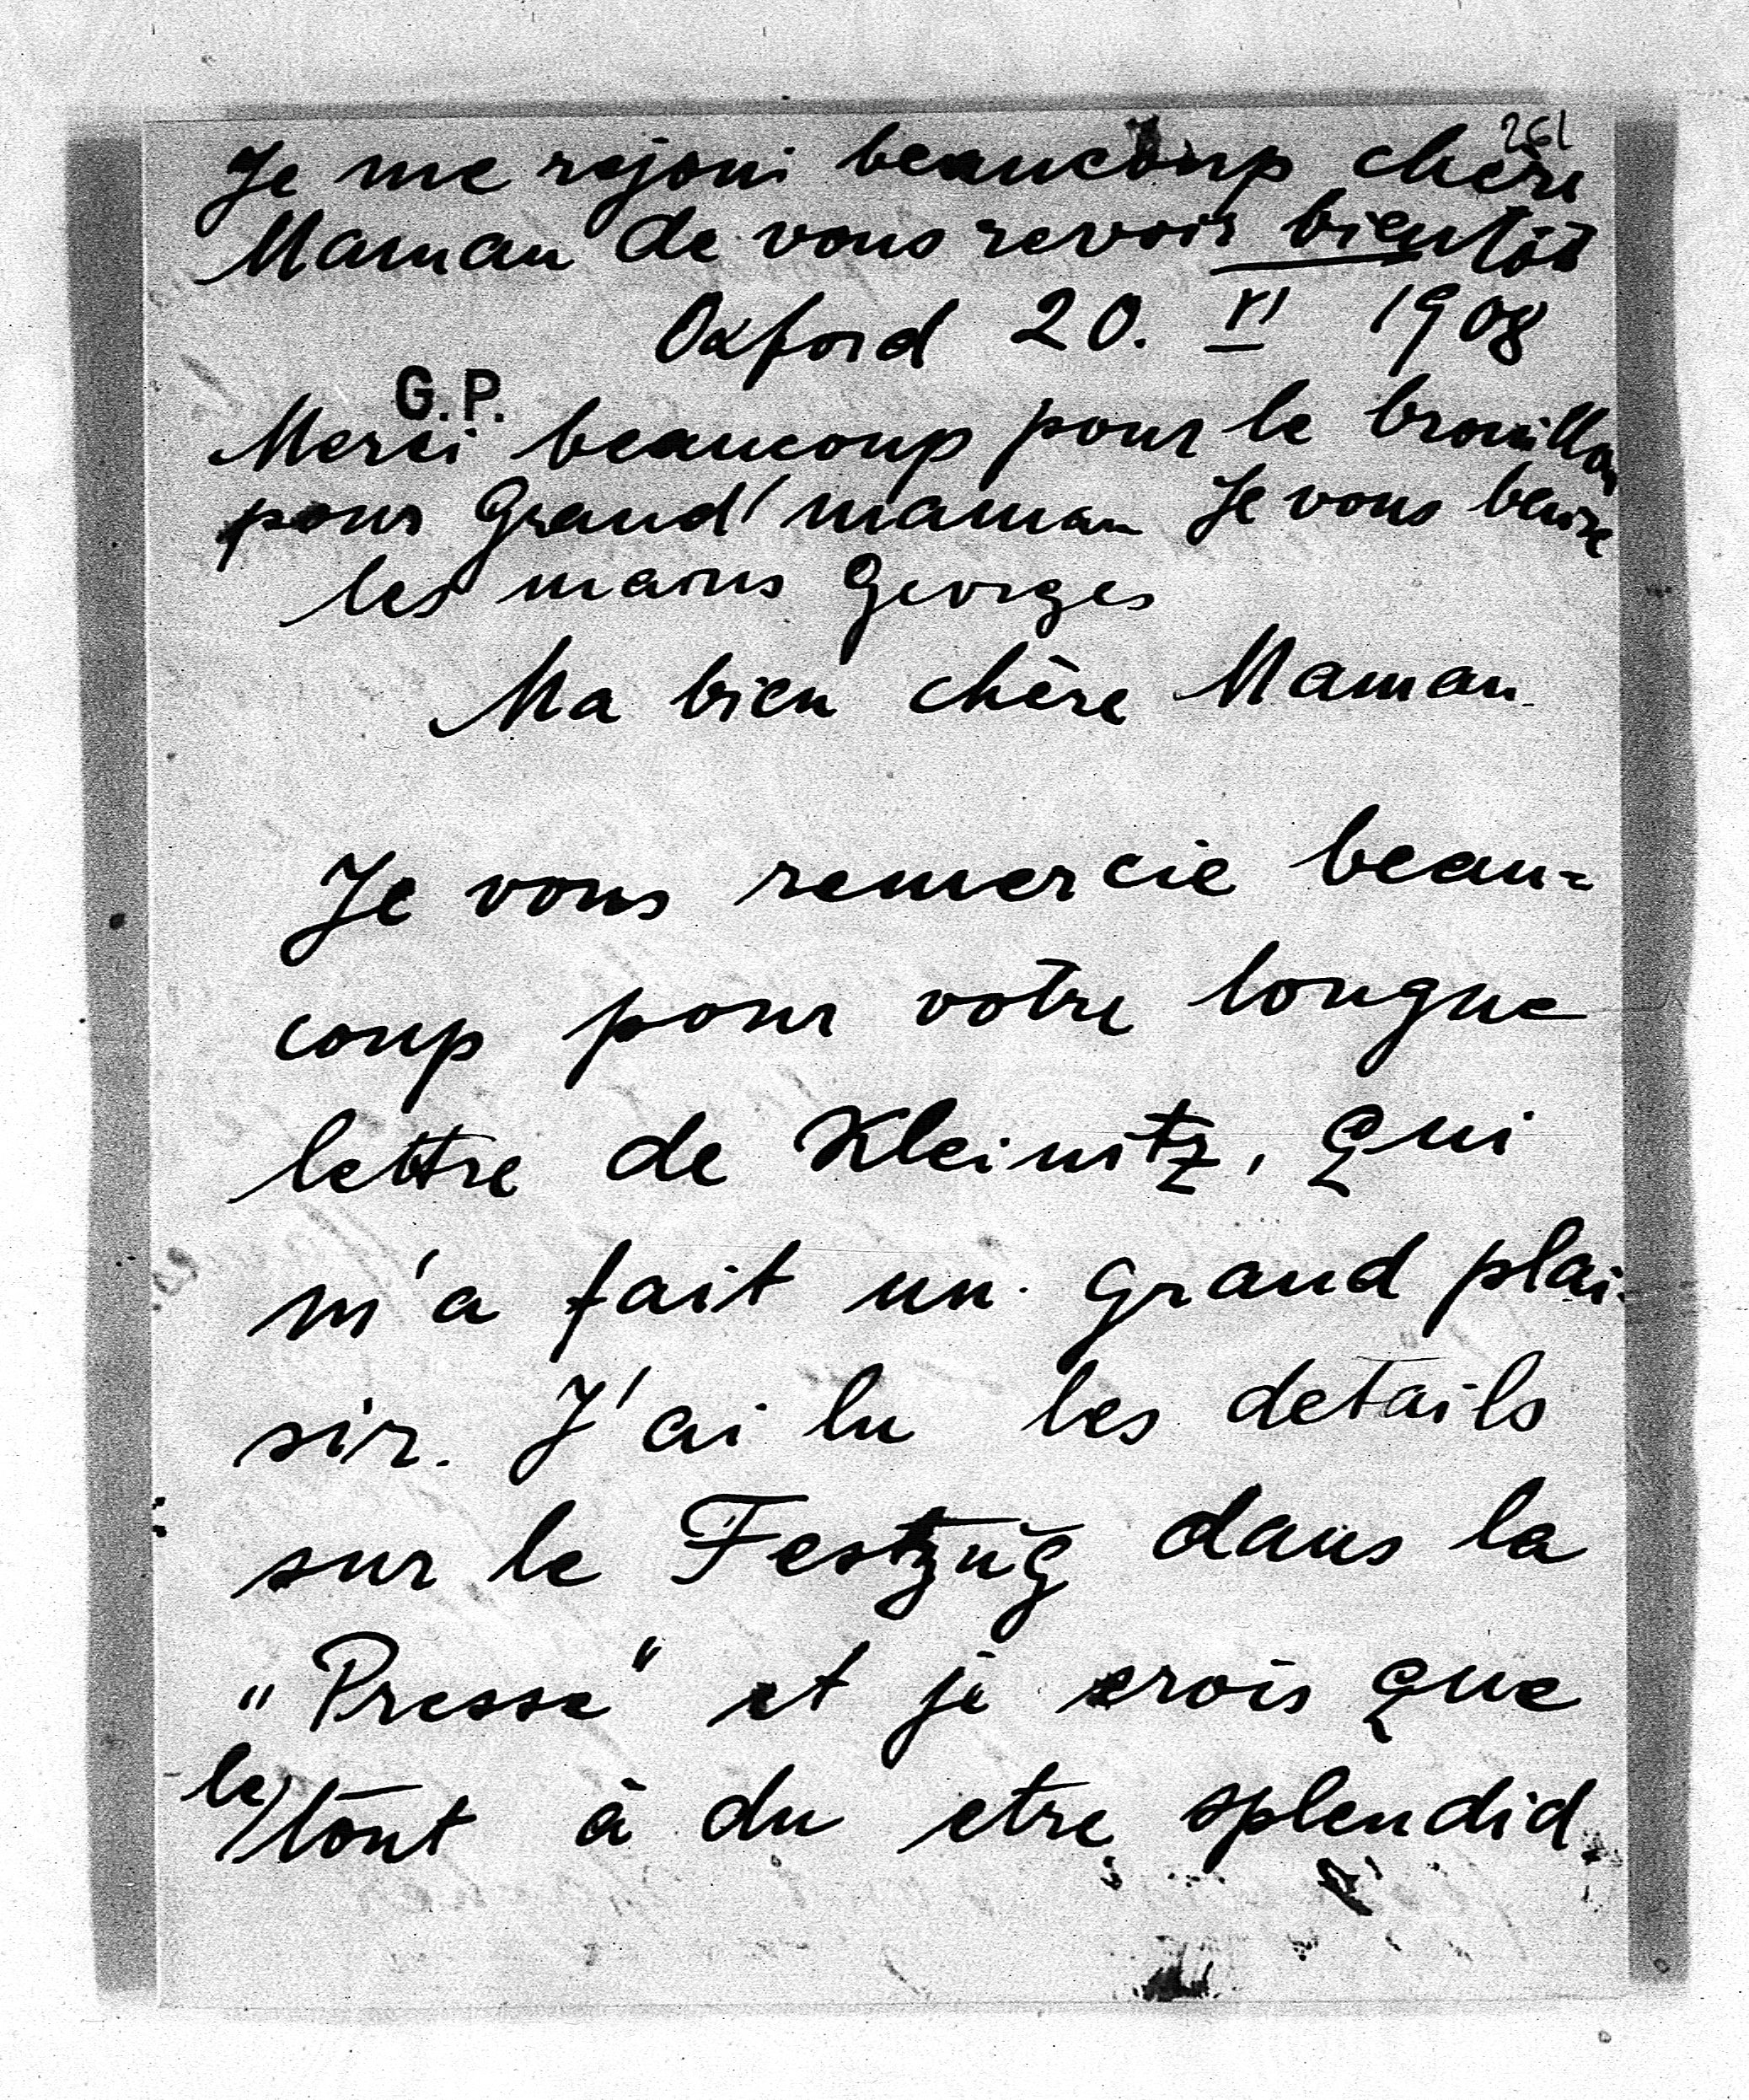 261
Je me rejoui beaucoup chère
Maman de vous revoir bientôt
Oxford 20. VI 1908
G.P.
Merci beaucoup pour le brouillon
pour Grand'maman Je vous baise
les mains Georges
Ma bien chère Maman.
Je vous remercie beau=
coup pour votre longue
lettre de Kleinitz, qui
m'a fait un grand plai-
sir. J'ai lu les details
sur le Festzug dans la
„Presse" et je crois que
le tout à du etre splendid